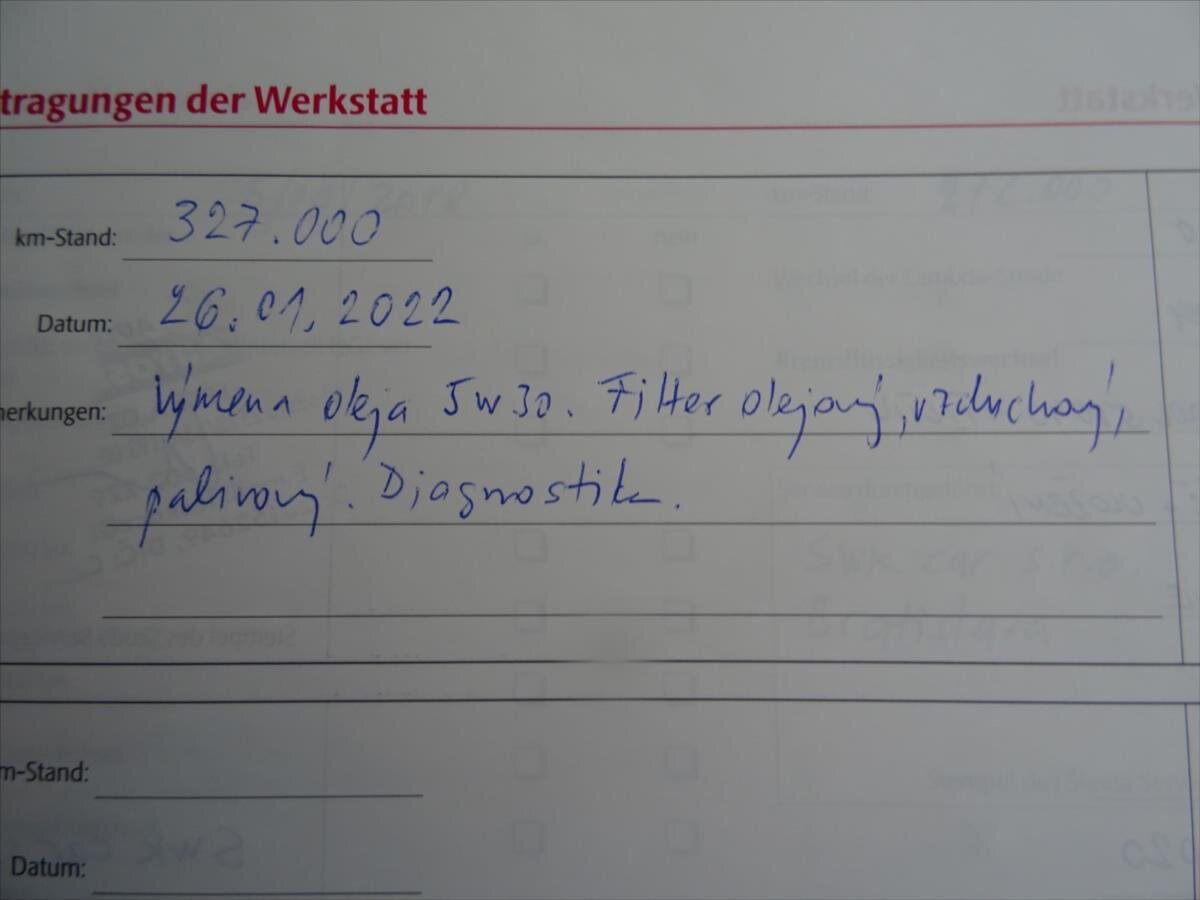 tragungen der Werkstatt
km-Stand: 327.000
Datum: 26.01.2022
merkungen: Výmena oleja 5w30. Filter olejový, vzduchový,
palivový. Diagnostika.
m-Stand:
Datum: